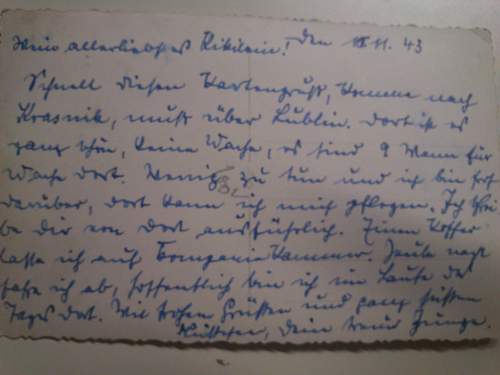 Mein allerliebstes Kikilein! Den 18.11.43
Schnell diesen Kartengruß, komme nach
Krasnik, muß über Lublin. Dort ist es
ganz schön, keine Wache, es sind 9 Mann für
Wache dort. Wenig zu tun und ich bin froh
darüber, dort kann ich mich pflegen. Ich schrei
be dir von dort ausführlich. Koffer
lasse ich auf Kompaniekammer. Heute nacht
fahre ich ab, hoffentlich bin ich im Laufe des
Tages dort. Mit frohen Grüßen und ganz süßen
Küßchen, dein Junge.